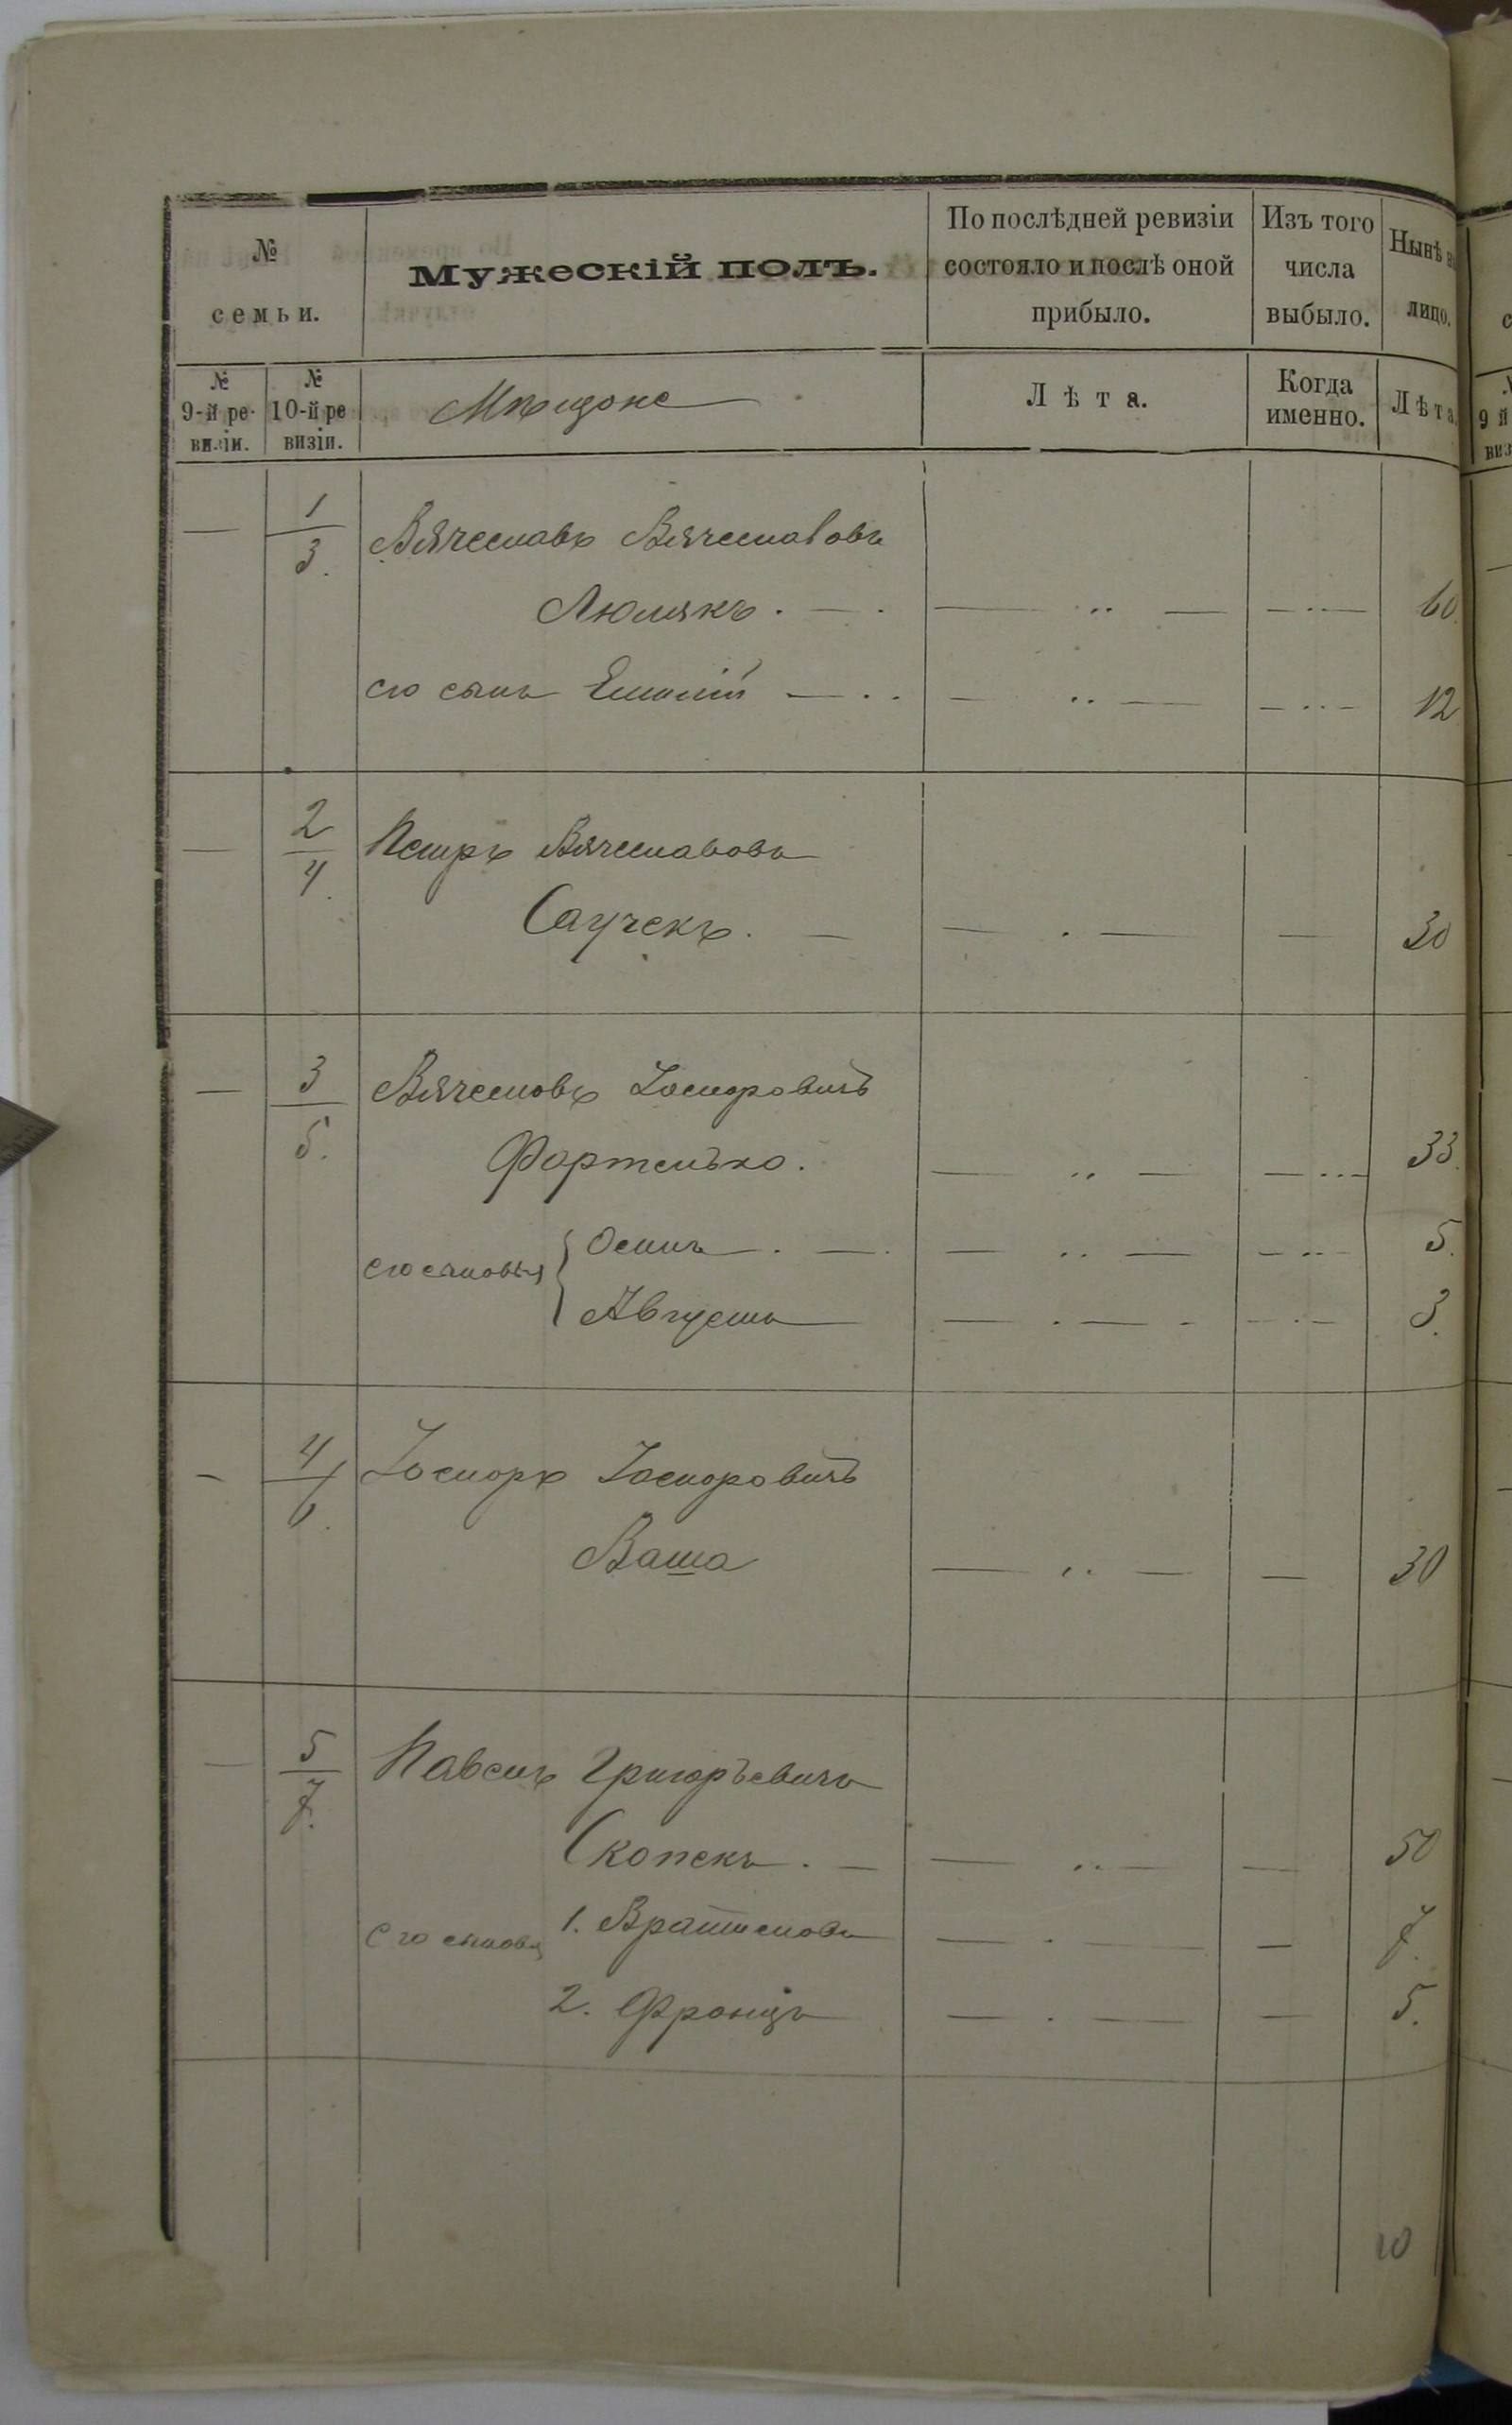 № семьи.
Мужескій полъ.
По послѣдней ревизіи состояло и послѣ оной прибыло.
Изъ того числа выбыло.
Нынѣ на лицо.
№ 9-й ре-визіи.
№ 10-й ре визіи.
Мѣщане
Лѣта.
Когда именно.
Лѣта.
— 1/3. Вячеславъ Вячеславовъ
Люлякъ. — . — .. — — .. — 60.
его сынъ — .. — .. — — .. — 12
— 2/4. Петръ Вячеславовъ
Саучекъ. — — . — — 30
— 3/5. Вячеславъ Іосифовичъ
— .. — — ... — 33.
его сыновья { Осипъ — . — . — .. — — .. — 5.
Августъ — — . — - — . — 3.
— 4/6. Іосифъ Іосифовичъ
Ваша — .. — — 30
— 5/7. Павелъ Григорьевичъ
Скопекъ. — — .. — — 50
его сыновья 1. Вратиславъ — . — — 7.
2. Францъ — . — — 5.
10